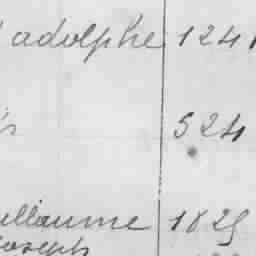 adolphe 1241
524
uillaume 1825
Joseph